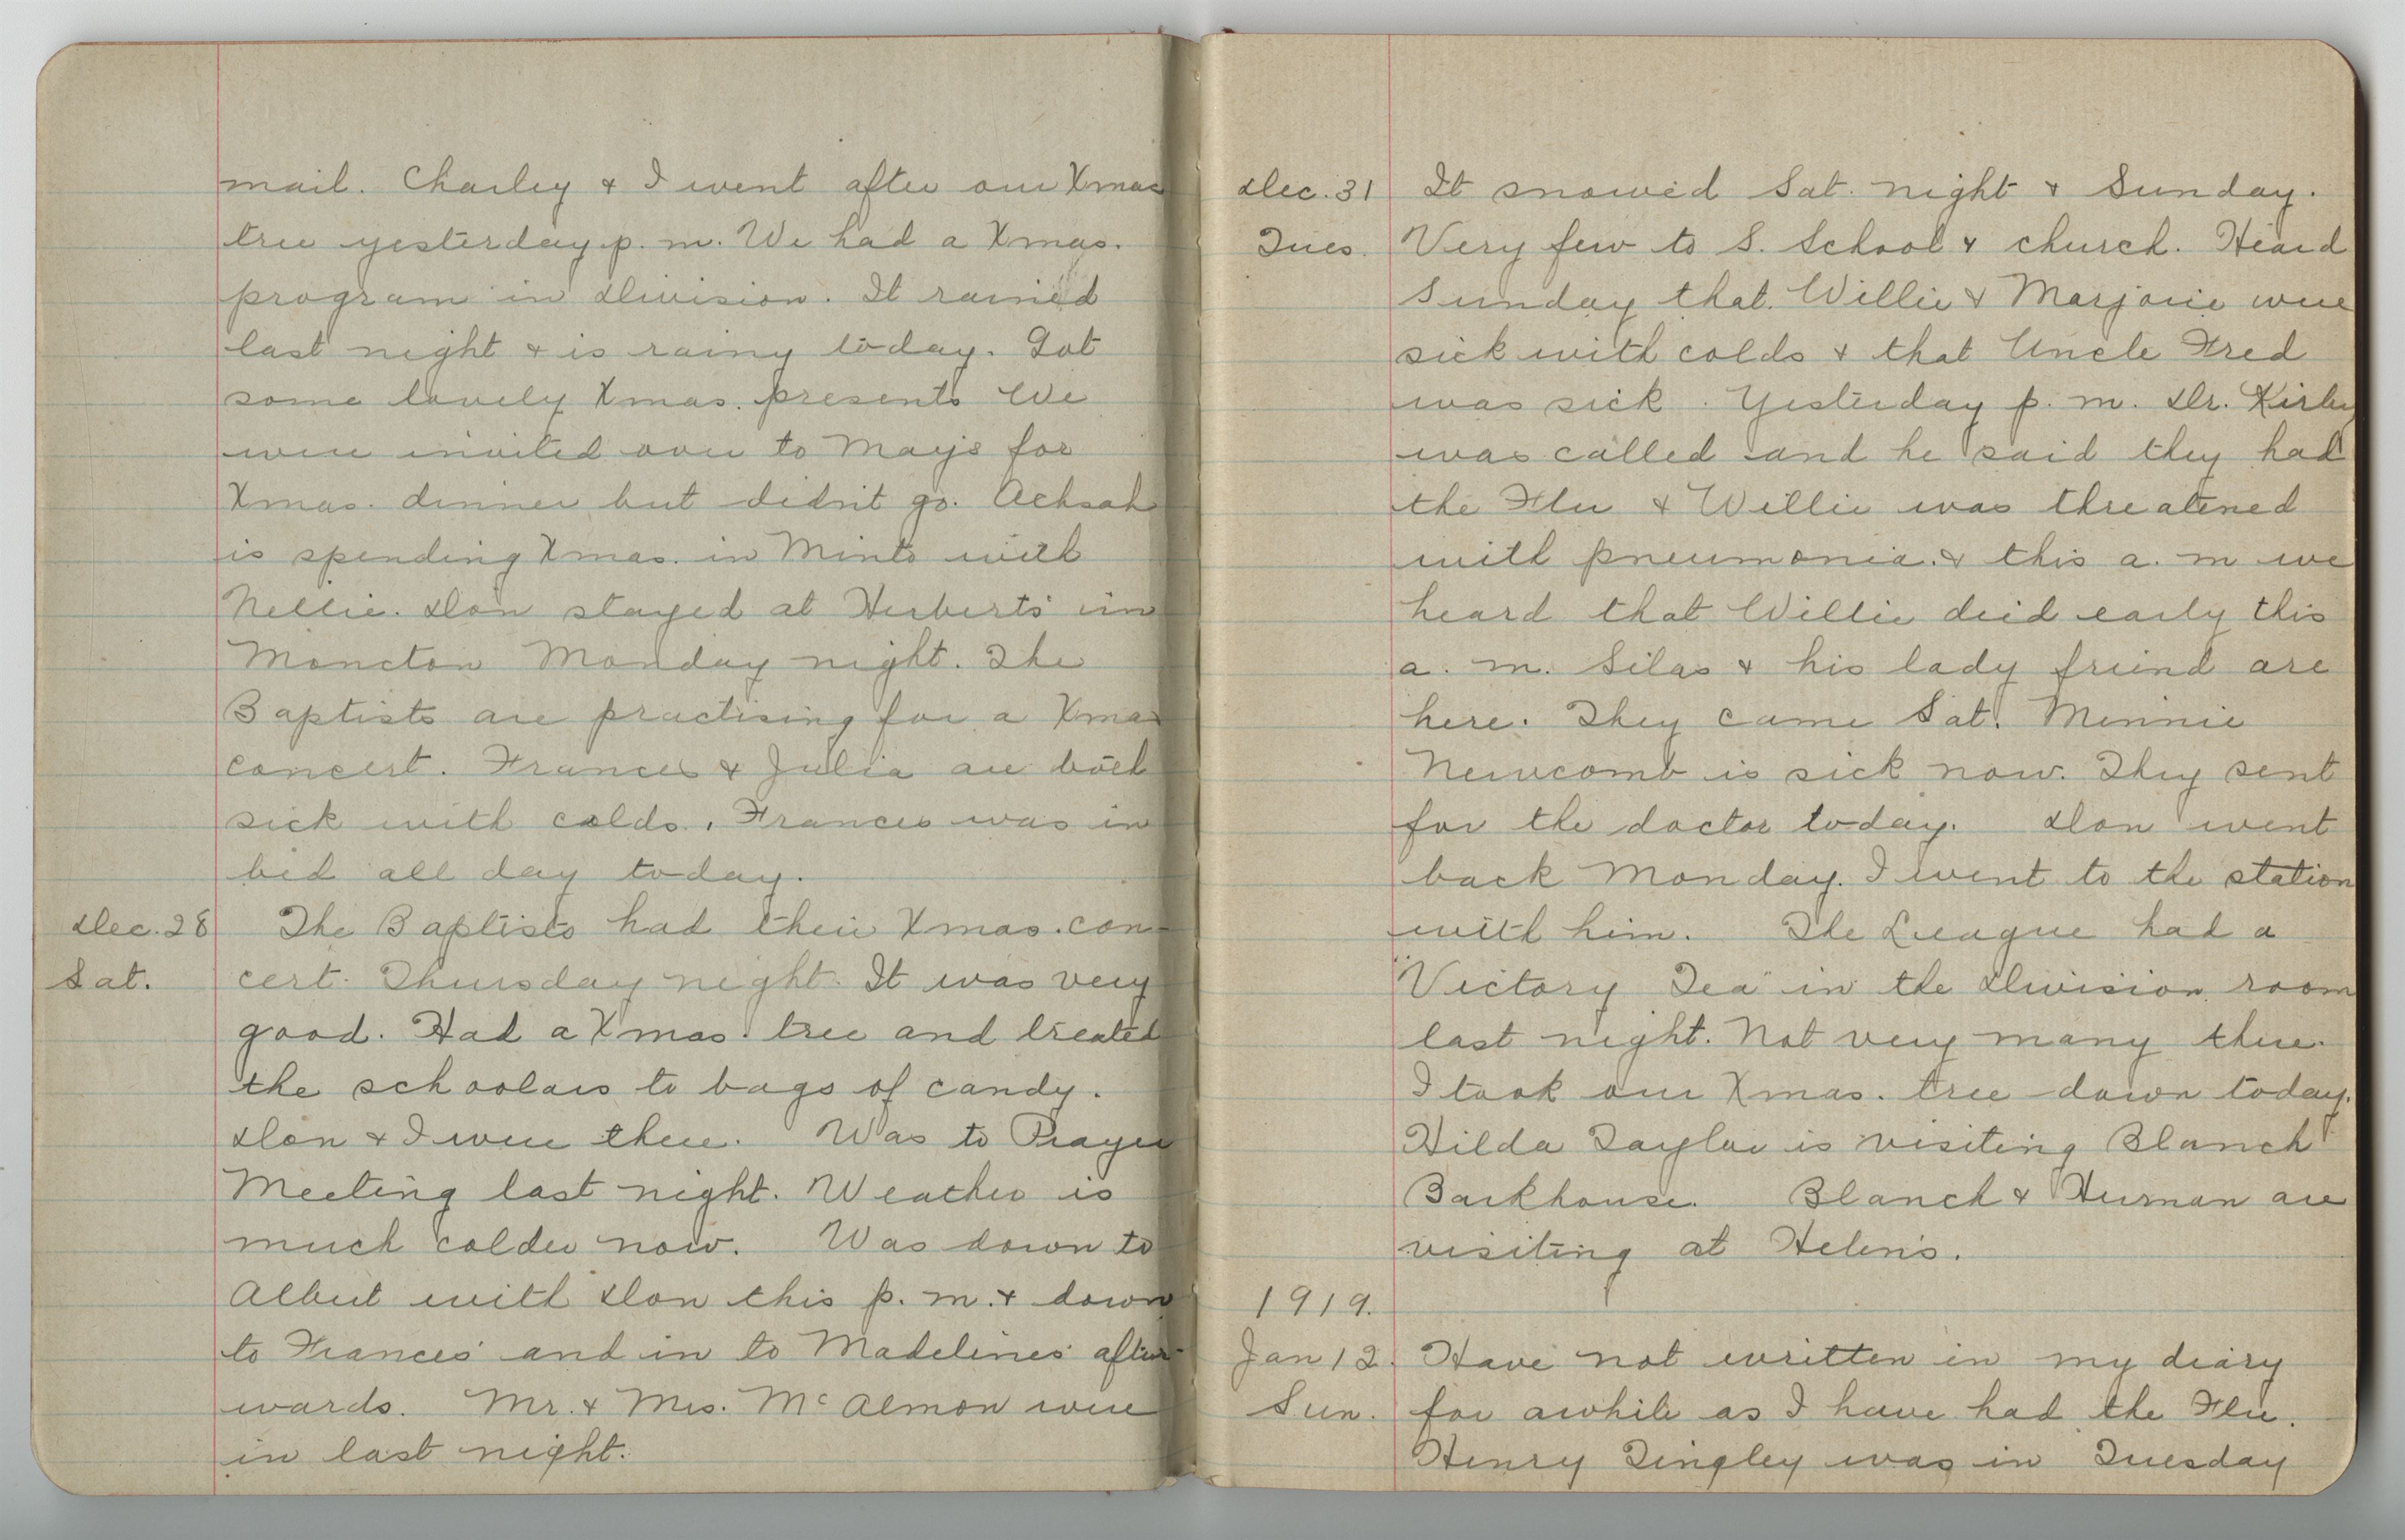 mail. Charley & I went after our Xmas
tree yesterday p. m. We had a Xmas.
program in Division. It rained
last night & is rainy today. Got
some lovely Xmas. presents We
were invited over to May's for
Xmas. dinner but didn't go. Achsah
is spending Xmas. in Minto with
Nellie. Don stayed at Herberts' in
Moncton Monday night. The
Baptists are practising for a Xmas
concert. Frances & Julia are both
sick with colds. Frances was in
bed all day today.
Dec. 28 The Baptists had their Xmas. con-
Sat. cert. Thursday night. It was very
good. Had a Xmas. tree and treated
the schoolars to bags of candy.
Don & I were there. Was to Prayer
Meeting last night. Weather is
much colder now. Was down to
Albert with Don this p. m. & down
to Frances' and in to Madelines' after-
wards. Mr. & Mrs. McAlmon were
in last night.
Dec. 31 It snowed Sat. night & Sunday.
Tues. Very few to S. School & church. Heard
Sunday that Willie & Marjorie were
sick with colds & that Uncle Fred
was sick. Yesterday p. m. Dr. Kirby
was called and he said they had
the Flu & Willie was threatened
with pneumonia. & this a. m we
heard that Willie deid early this
a. m. Silas & his lady friend are
here. They came Sat. Minnie
Newcomb is sick now. They sent
for the doctor today. Don went
back Monday. I went to the station
with him. The League had a
"Victory Tea" in the Division room
last night. Not very many there.
I took our Xmas. tree down today.
Hilda Taylor is visiting Blanch
Barkhouse. Blanch & Herman are
visiting at Helen's.
1919.
Jan 12. Have not written in my diary
Sun. for awhile as I have had the Flu.
Henry Tingley was in Tuesday